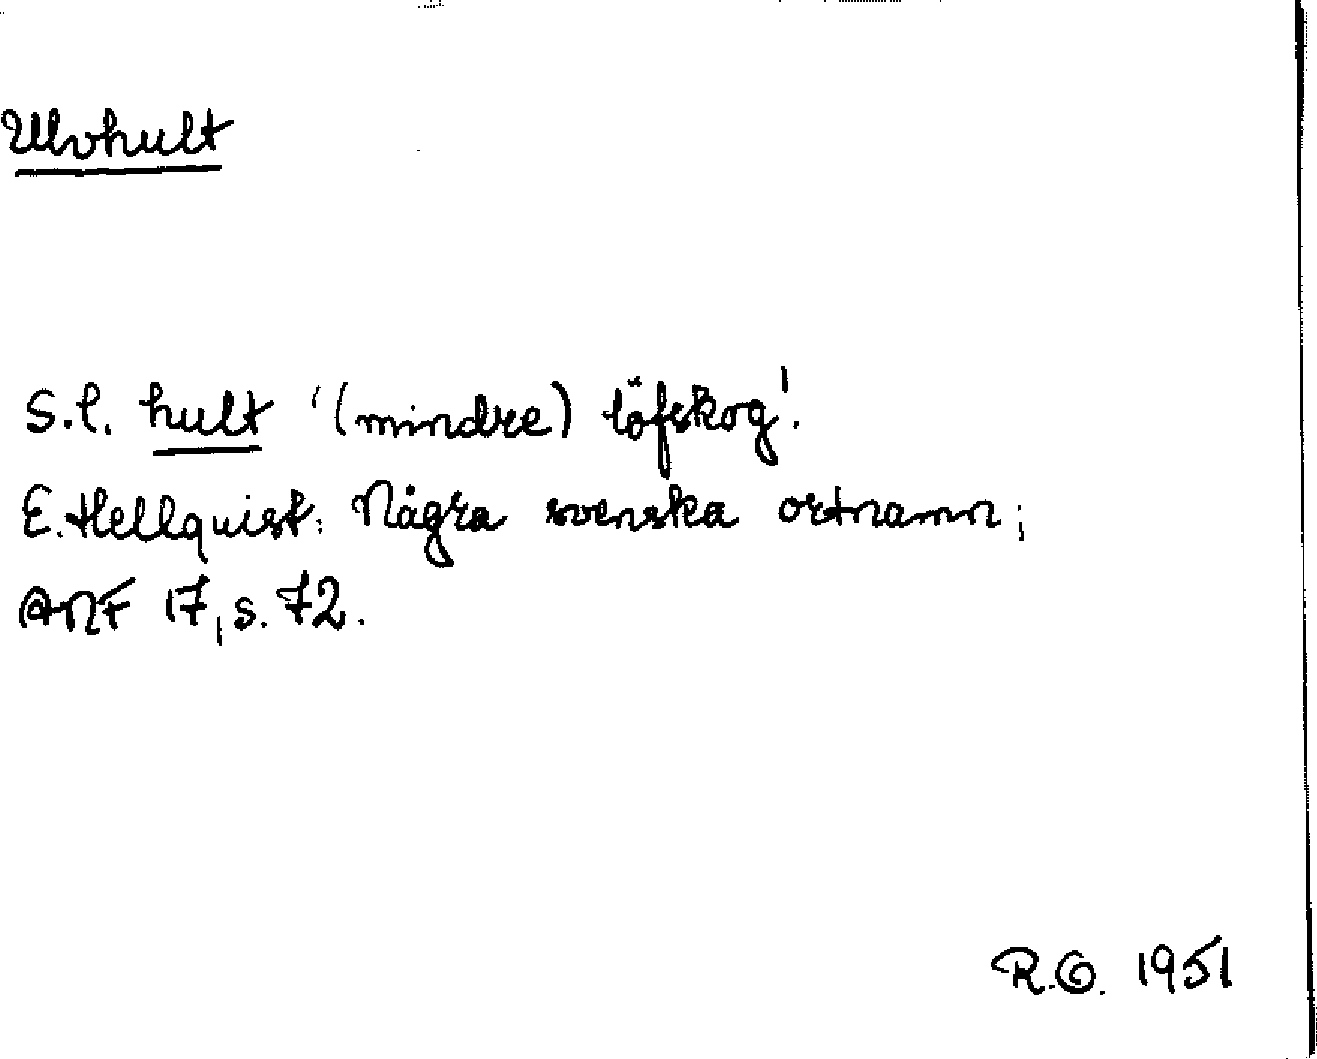 Ulvhult
S.l. hult '(mindre) löfskog'.
E. Hellquist: Några svenska ortnamn;
ANF 17, s. 72.
R.G. 1951